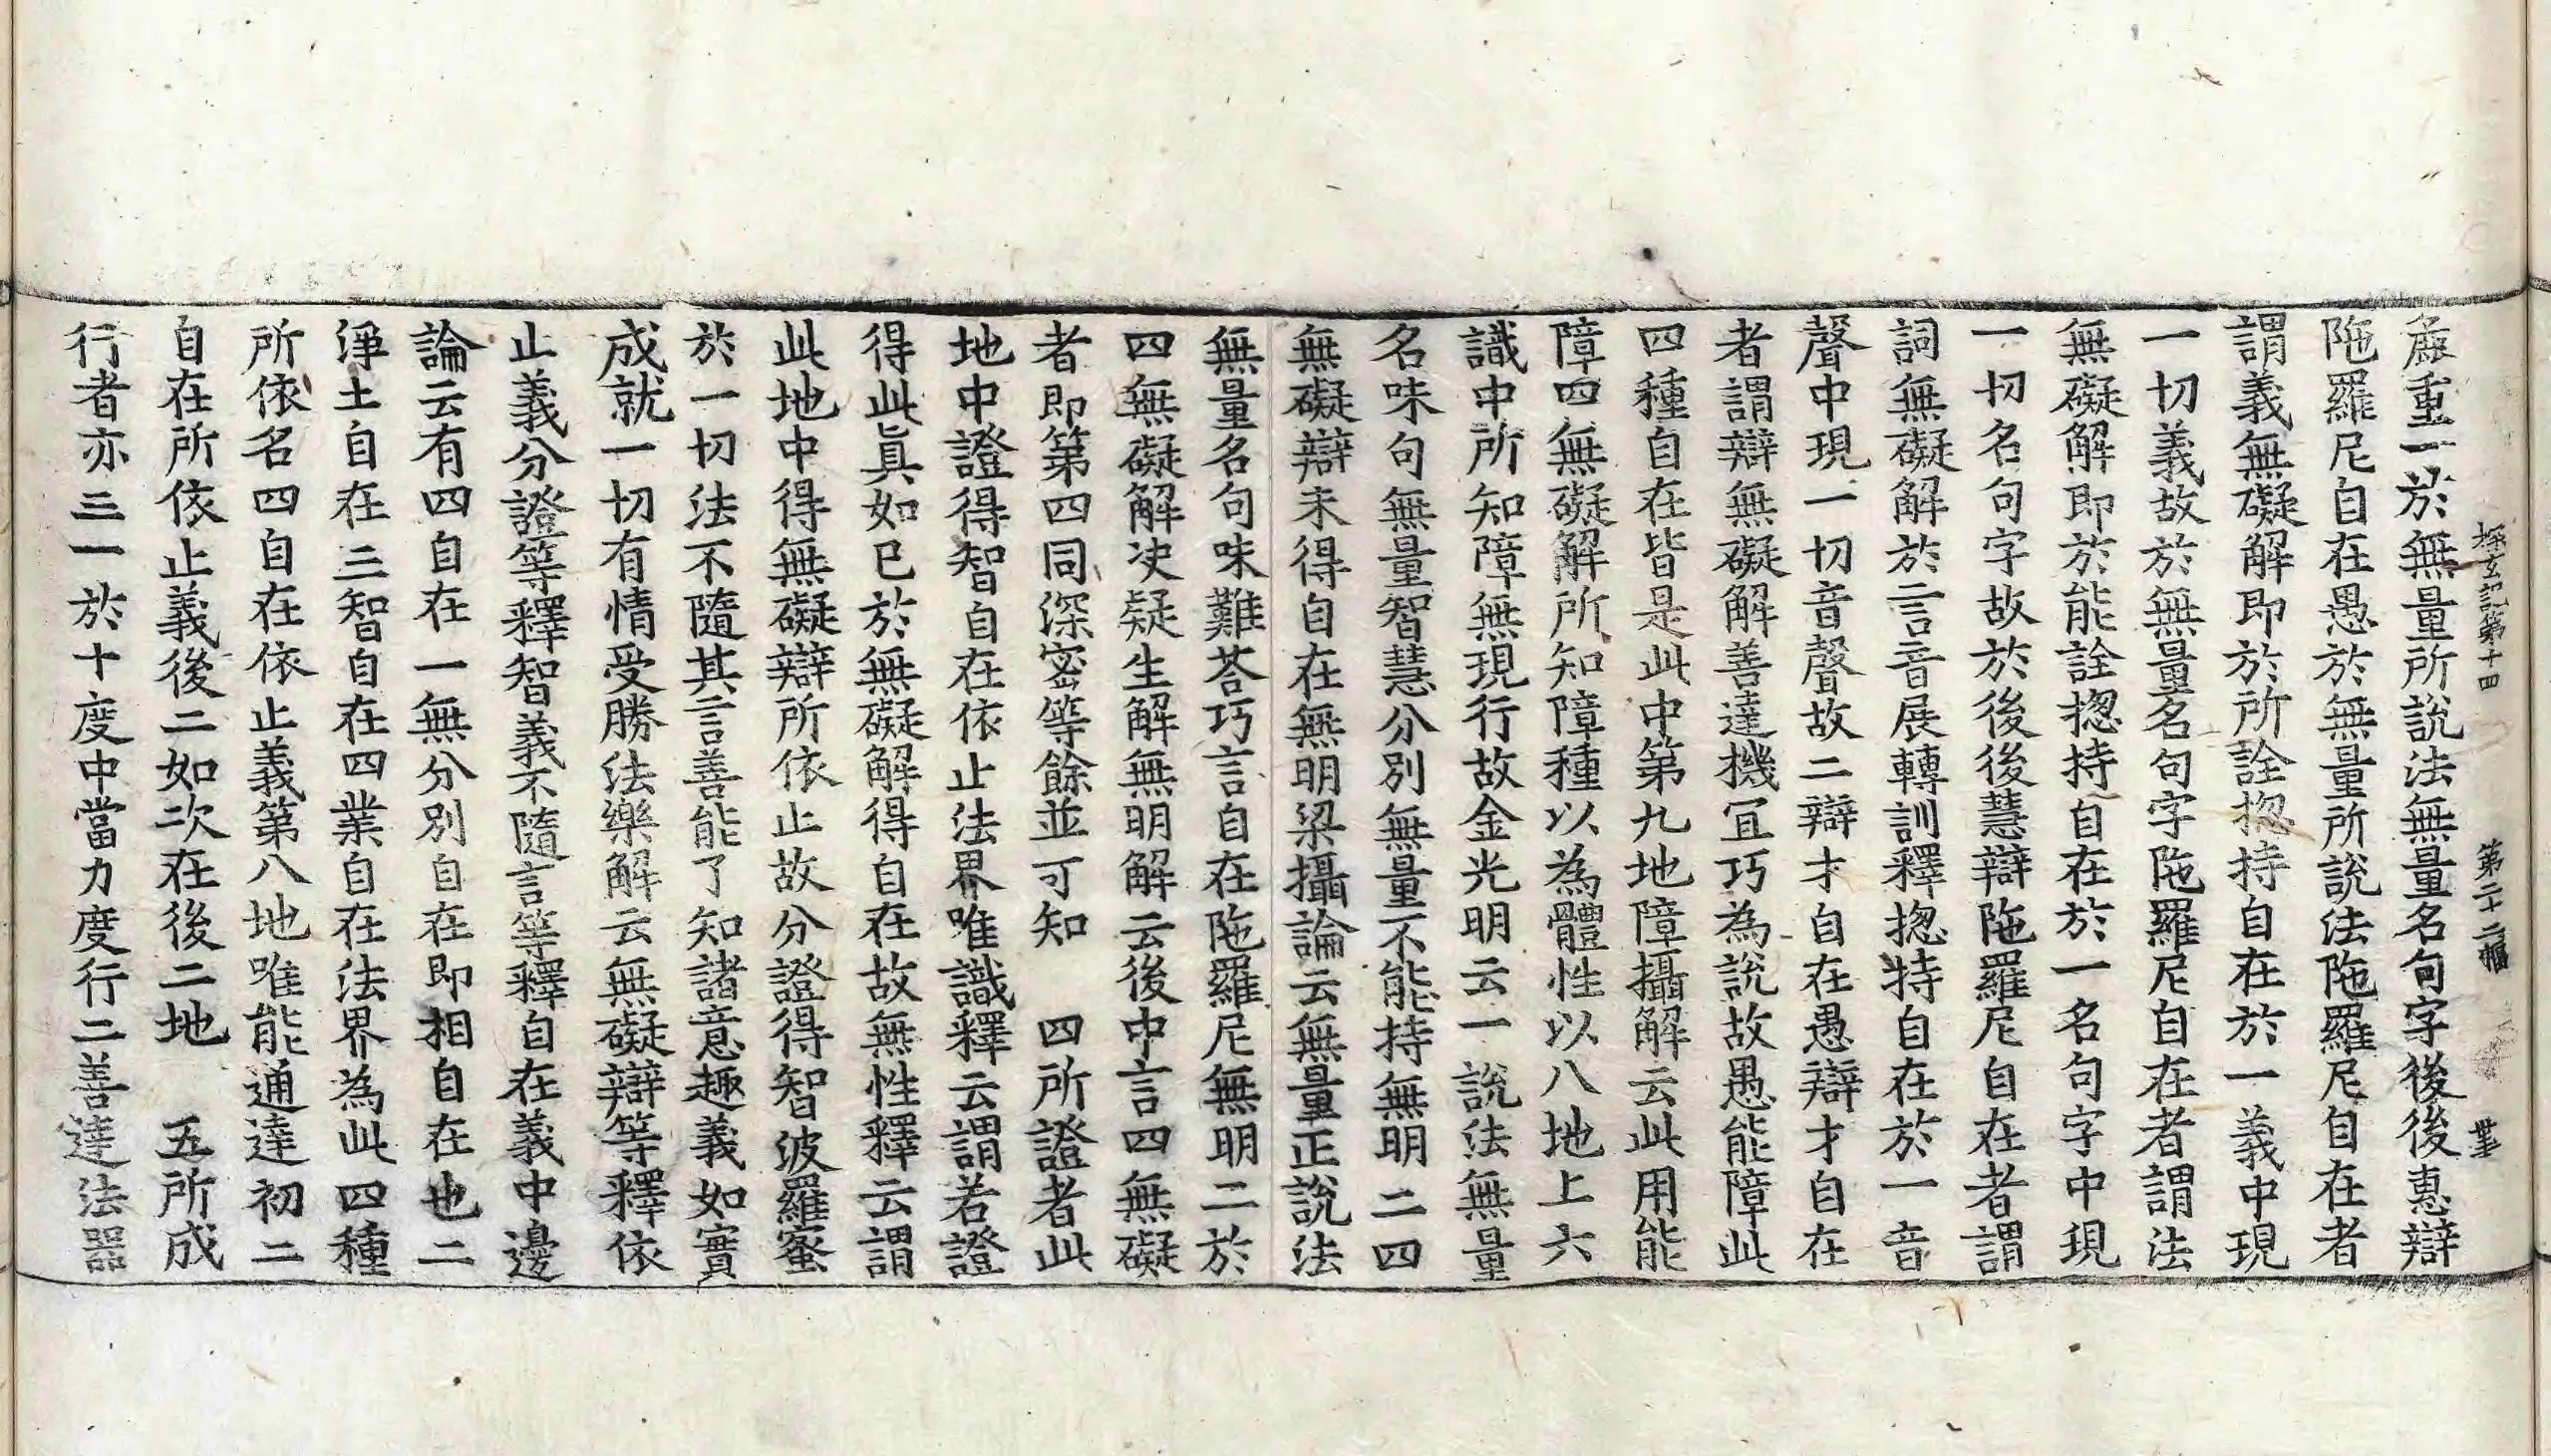 探玄記第十四 第二十二幅 業
麁重一於無量所說法無量名句字後後惠辯
陁羅尼自在愚於無量所說法陁羅尼自在者
謂義無礙解即於所詮揔持自在於一義中現
一切義故於無量名句字陁羅尼自在者謂法
無礙解即於能詮揔持自在於一名句字中現
一切名句字故於後後慧辯陁羅尼自在者謂
詞無礙解於言音展轉訓釋揔持自在於一音
聲中現一切音聲故二辯才自在愚辯才自在
者謂辯無礙解善達機冝巧為說故愚能障此
四種自在皆是此中第九地障攝解云此用能
障四無礙解所知障種以為體性以八地上六
識中所知障無現行故金光明云一說法無量
名味句無量智慧分別無量不能持無明二四
無礙辯未得自在無明梁攝論云無量正說法
無量名句味難荅巧言自在陁羅尼無明二於
四無礙解决疑生解無明解云後中言四無礙
者即第四同深密等餘並可知　四所證者此
地中證得智自在依止法界唯識釋云謂若證
得此真如已於無礙解得自在故無性釋云謂
此地中得無礙辯所依止故分證得智波羅蜜
於一切法不隨其言善能了知諸意趣義如實
成就一切有情受勝法樂解云無礙辯等釋依
止義分證等釋智義不隨言等釋自在義中邊
論云有四自在一無分別自在即相自在也二
淨土自在三智自在四業自在法界為此四種
所依名四自在依止義第八地唯能通達初二
自在所依止義後二如次在後二地　五所成
行者亦三一於十度中當力度行二善達法器